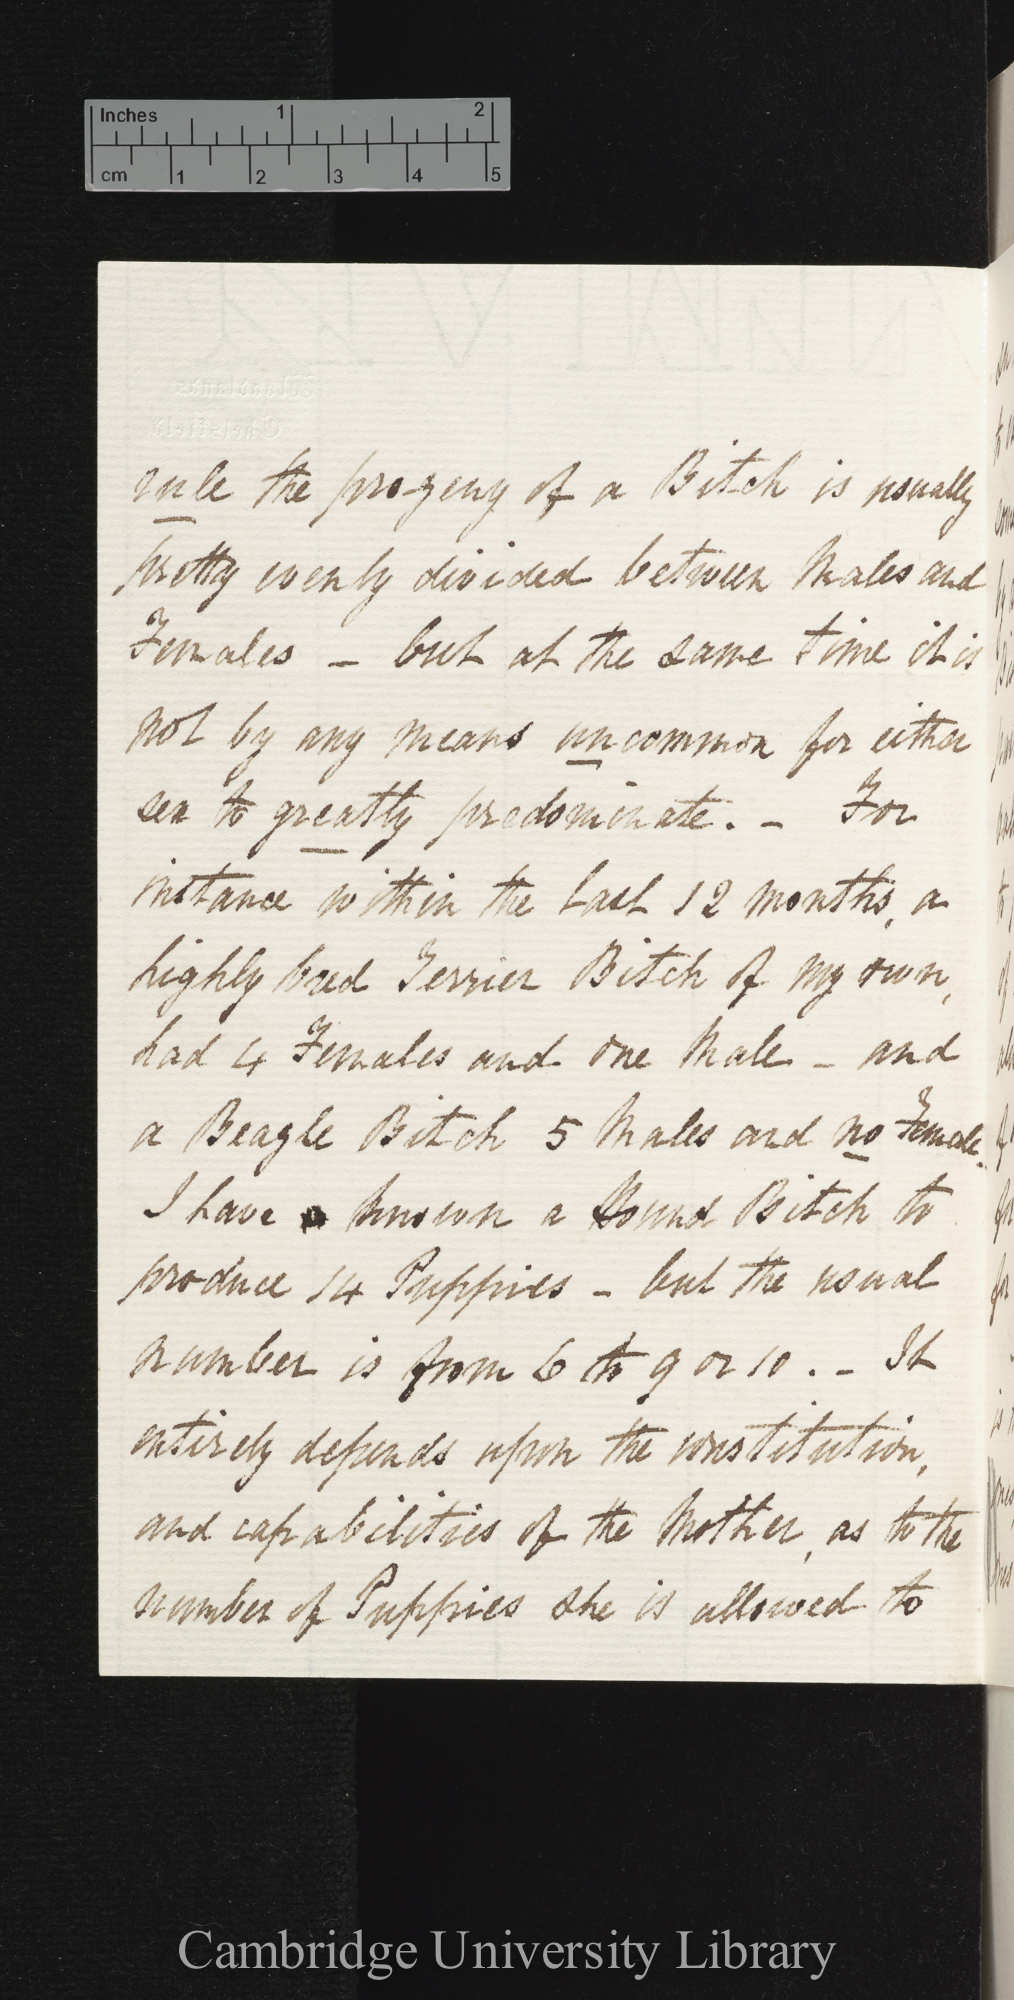 Inches 1 2
cm 1 2 3 4 5
Woodlands
Chelsfield
rule the progeny of a Bitch is usually
pretty evenly divided between Males and
Females – but at the same time it is
not by any means uncommon for either
sex to greatly predominate. – For
instance within the last 12 months, a
highly bred Terrier Bitch of my own,
had 4 Females and one Male – and
a Beagle Bitch 5 Males and no Female.
I have known a Hound Bitch to
produce 14 Puppies – but the usual
number is from 6 to 9 or 10. – It
entirely depends upon the constitution,
and capabilities of the Mother, as to the
number of Puppies she is allowed to
Cambridge University Library